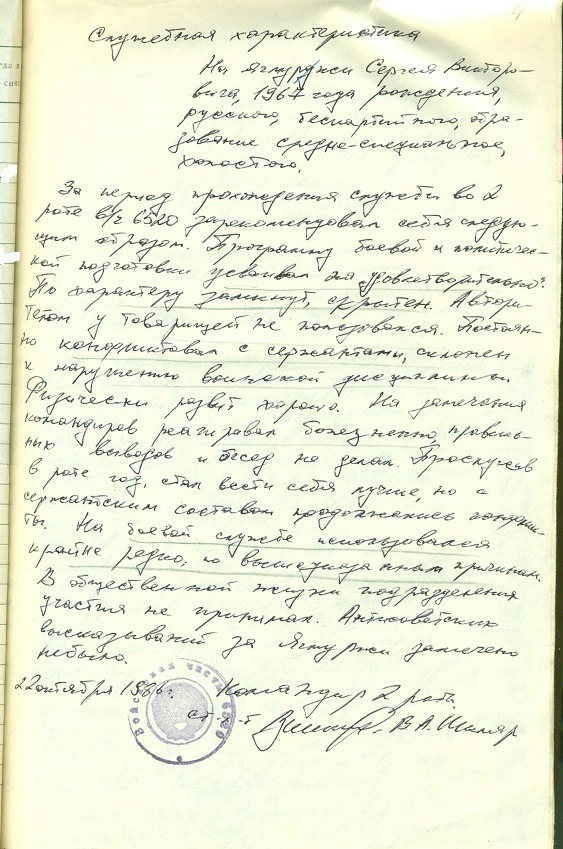 4
Служебная характеристика
На Ягмурджи Сергея Викторо-
вича, 1967 года рождения,
русского, беспартийного, обра-
зование средне-специальное,
холостого.
За период прохождения службы во 2
роте в/ч 6520 зарекомендовал себя следую-
щим образом. Программу боевой и политичес-
кой подготовки усваивал на "удовлетворительно".
По характеру замкнут, скрытен. Автори-
тетом у товарищей не пользовался. Постоян-
но конфликтовал с сержантами, склонен
к нарушению воинской дисциплины.
Физически развит хорошо. На замечания
командиров реагировал болезненно, правиль-
ных выводов и бесед не делал. Прослужив
в роте год, стал вести себя лучше, но с
сержантским составом продолжались конфлик-
ты. На боевой службе использовался
крайне редко, по вышеуказанным причинам.
В общественной жизни подразделения
участия не принимал. Антисоветских
высказываний за Ягмурджи замечено
небыло.
22 октября 1986г. Командир 2 роты
ст. л-т В.А. Шкляр
Войсковая часть 6520